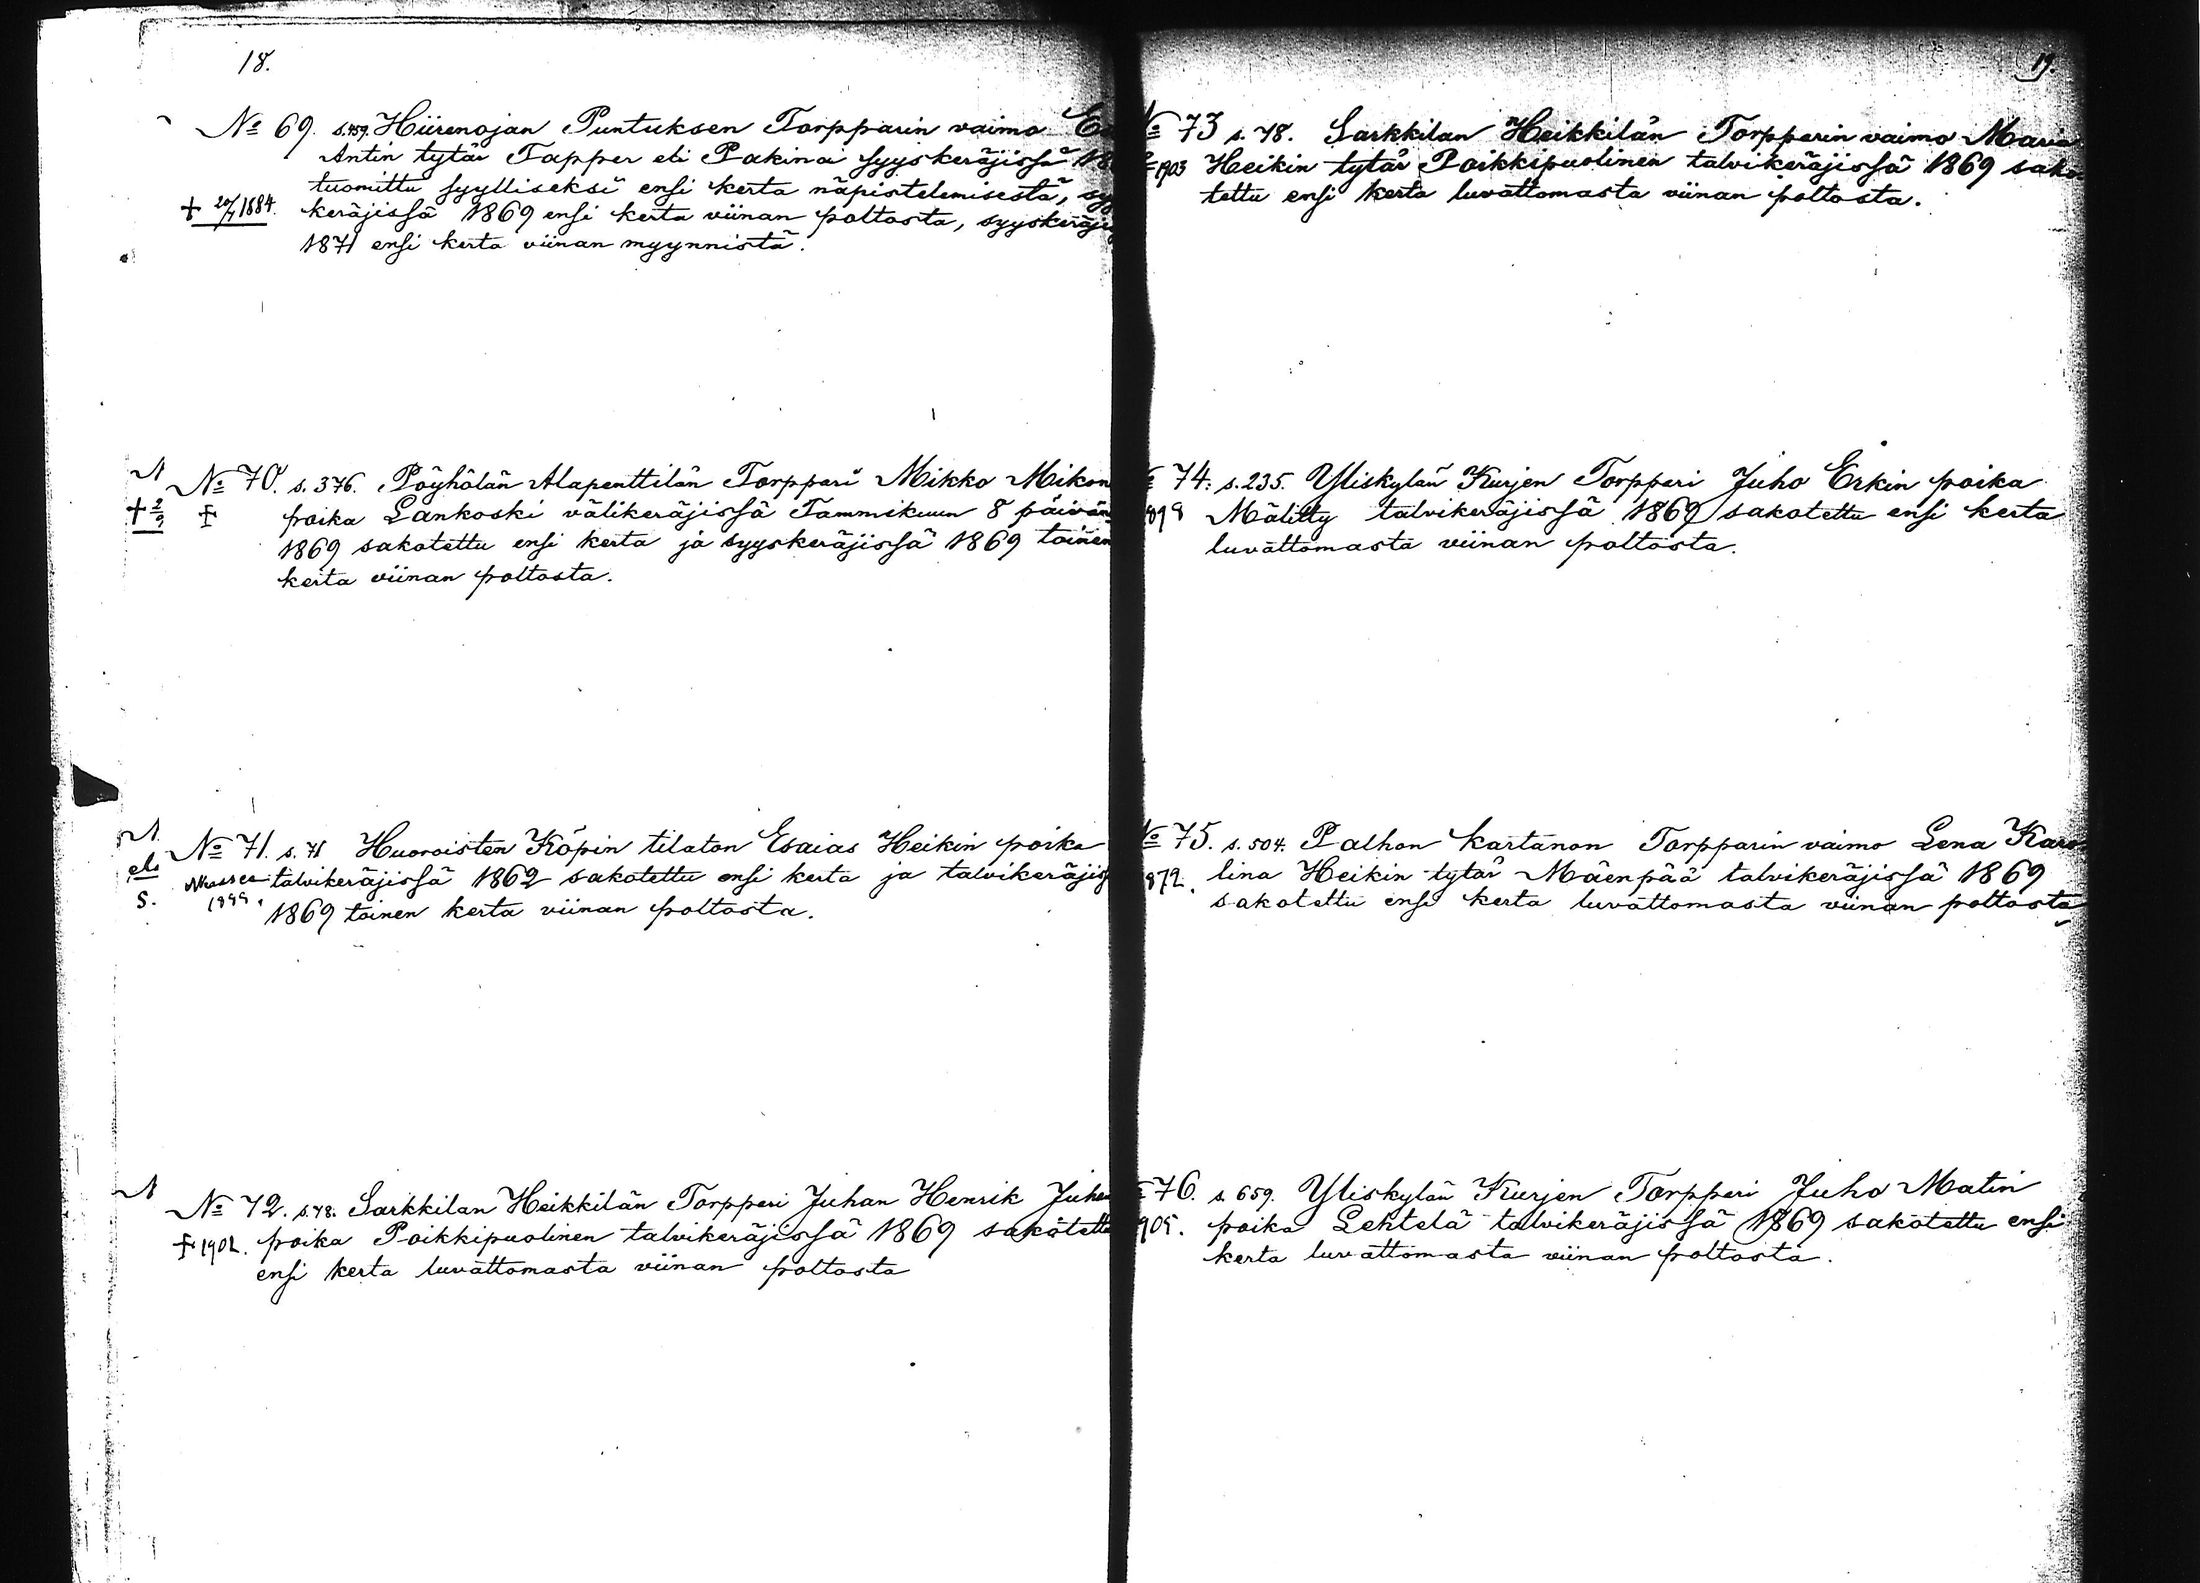 18.
№ 69. s.459. Hiirenojan Puntuksen Torpparin vaimo
Antin tytär Tapper eli Pakinai syyskeräjissä 18
tuomittu syylliseksi ensi kerta näpistelemisestä, syy
+ 20/7 1884. keräjissä 1869 ensi kerta viinan poltosta, syyskeräji
1871 ensi kerta viinan myynnistä.
№ 70. s. 376. Pöyhölän Alapenttilän Torppari Mikko Mikon
poika Lankoski välikeräjissä Tammikuun 8 päivän
1869 sakotettu ensi kerta ja syyskeräjissä 1869 toinen
kerta viinan poltosta.
№ 71. s. 71 Huoroisten Köpin tilaton Esaias Heikin poika
talvikeräjissä 1862 sakotettu ensi kerta ja talvikeräjis
1899. 1869 toinen kerta viinan poltosta.
№ 72. s.78. Sarkkilan Heikkilän Torpperi Juhan Henrik Juha
+ 1902. poika Poikkipuolinen talvikeräjissä 1869 sakotettu
ensi kerta luvattomasta viinan poltosta
19.
№ 73 s. 78. Sarkkilan Heikkilän Torpperin vaimo Maria
+ 1903 Heikin tytär Poikkipuolinen talvikeräjissä 1869 sako
tettu ensi kerta luvattomasta viinan poltosta.
74. s. 235. Yliskylän Kurjen Torpperi Juho Erkin poika
1898 Mälitty talvikeräjissä 1869 sakotettu ensi kerta
luvattomasta viinan poltosta.
№ 75. s. 504. Palhon kartanon Torpparin vaimo Lena Karo
872. lina Heikin tytär Mäenpää talvikeräjissä 1869
sakotettu ensi kerta luvattomasta viinan poltosta
76. s. 659. Yliskylän Kurjen Torpperi Juho Matin
905. poika Lehtelä talvikeräjissä 1869 sakotettu ensi
kerta luvattomasta viinan poltosta.